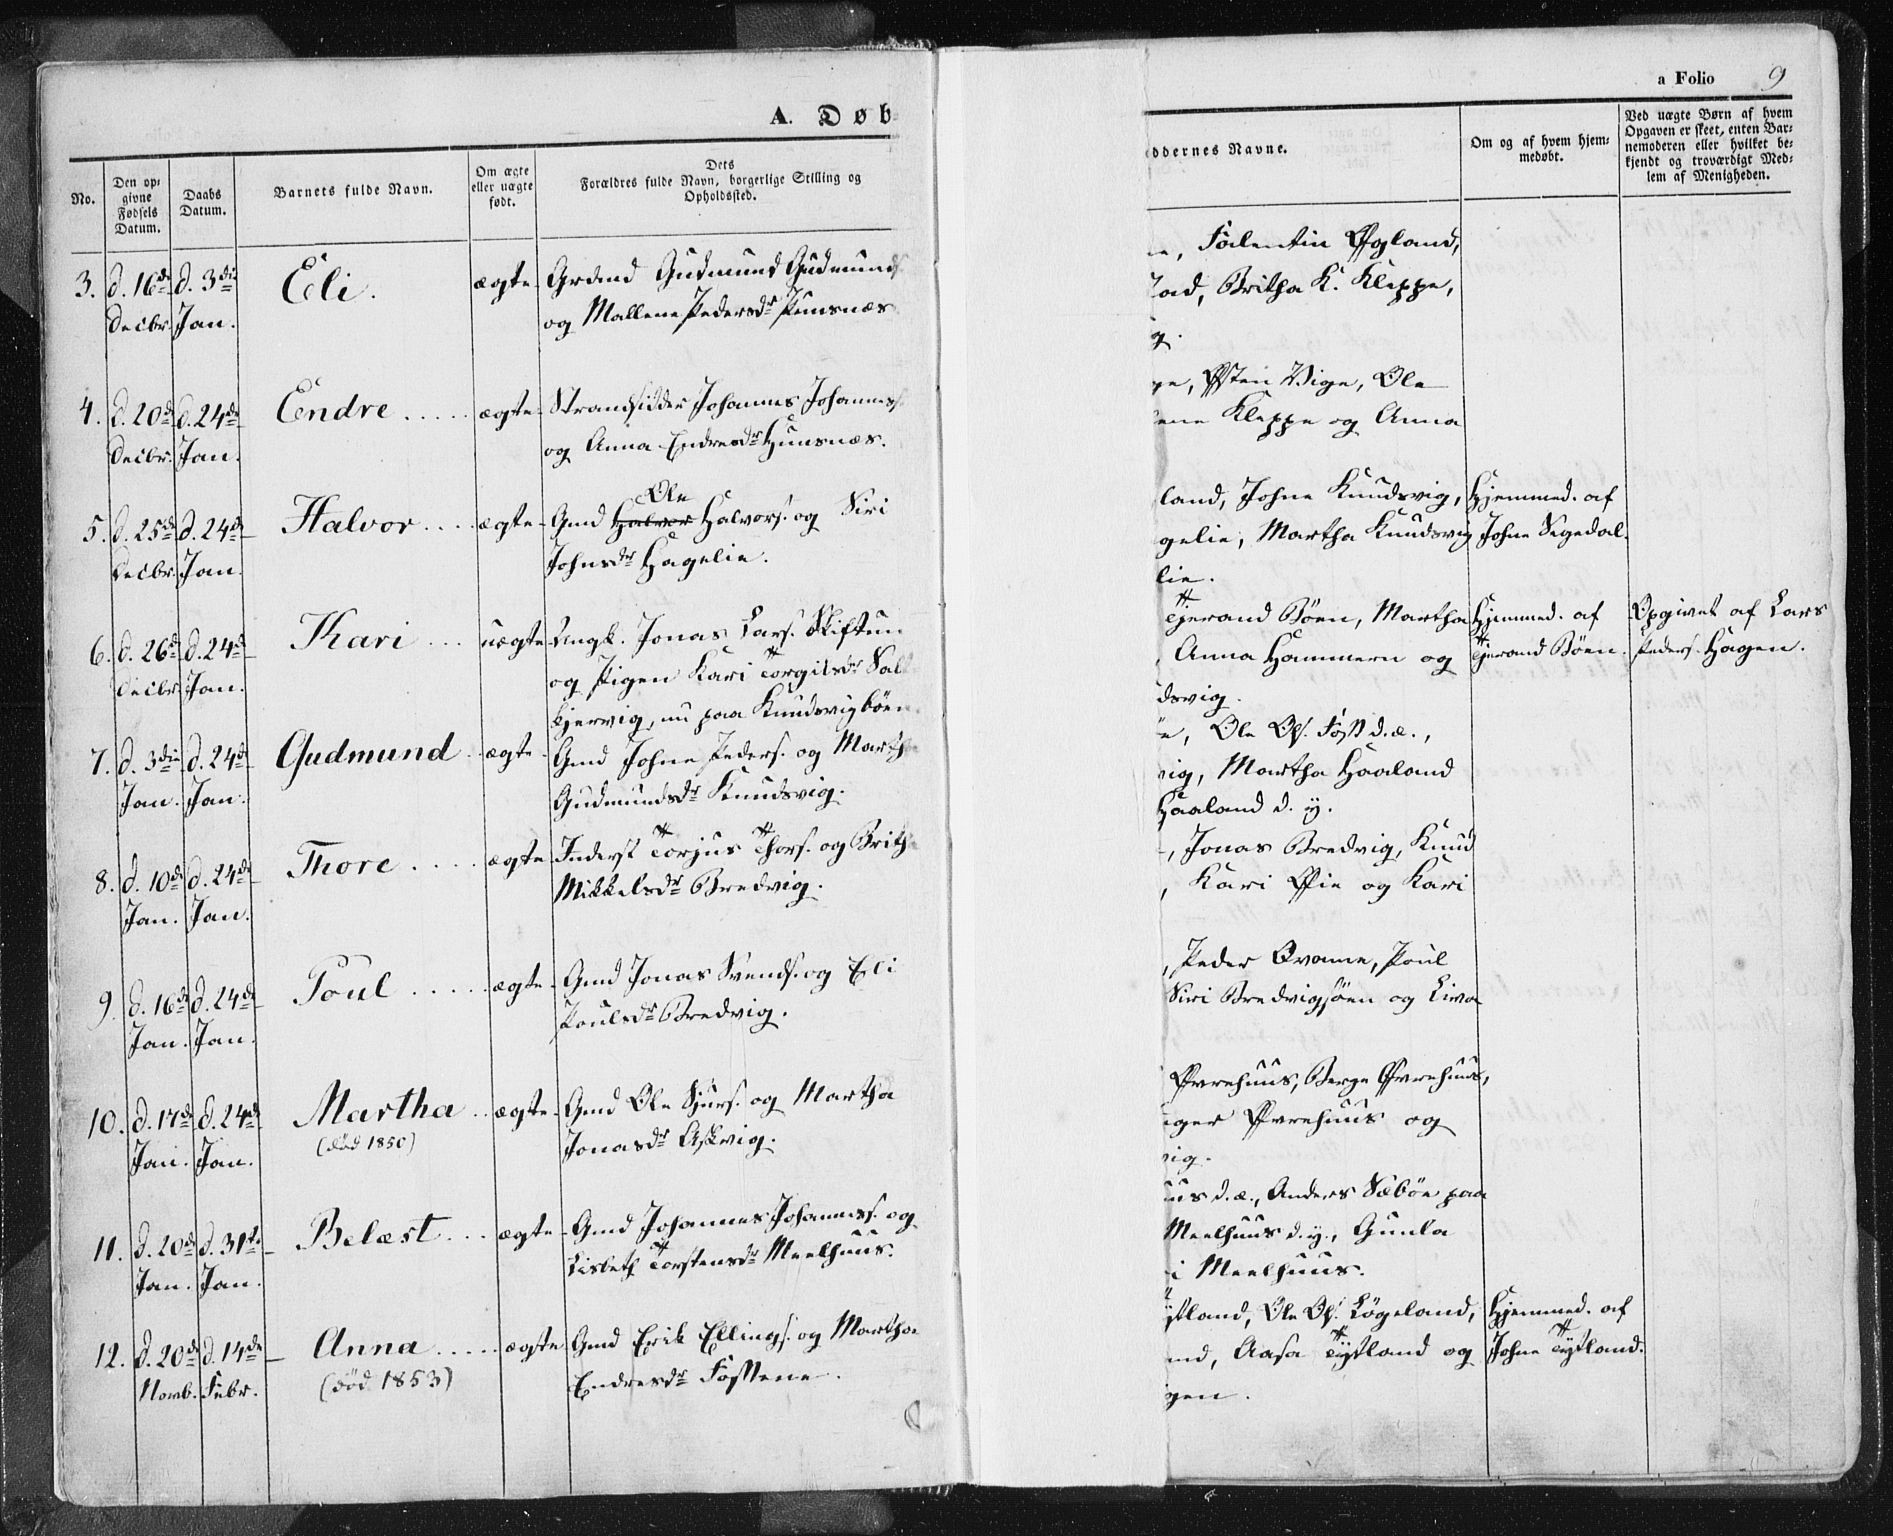 A. Døb
No.
Den opgivne Fødsels Datum.
Daabs Datum.
Barnets fulde Navn.
Om ægte eller uægte født.
Dets Forældres fulde Navn, borgerlige Stilling og Opholdssted.
3. d. 16de Decbr. d. 3die Jan. Eli. ægte
Grdmd Gudmund Gudmunds
og Mallene Pedersdr
4. d. 20de Decbr. d. 24de Jan. Endre .... ægte
Strandsidder Johannes Johanness.
og Anna Endresdr Hunsnæs.
5. d. 25de Decbr. d. 24de Jan. Halvor .... ægte
Ole
Gmd Halvor Halvors. og Siri
Johnsdr Hagelie.
6. d. 26de Decbr. d. 24de Jan. Kari ... uægte
Ungk. Jonas Lars. Skiftun
og Pigen Kari Torgilsdr Sal
kjervig, nu paa Knudsvigbøen.
7. d. 3die Jan. d. 24de Jan. Gudmund .. ægte
Gmd Johne Peders. og Marth
Gudmundsdr Knudsvig.
8. d. 10de Jan. d. 24de Jan. Thore .... ægte
Inderst Torjus Thors. og Brith
Mikkelsdr Bredvig.
9. d. 16de Jan. d. 24de Jan. Poul ..... ægte
Gmd Jonas Svends. og Eli
Poulsdr Bredvig.
10. d. 17de Jan. d. 24de Jan. Martha .. ægte
(død 1850)
Gmd Ole Sjurs. og Martha
Jonasdr Askvig.
11. d. 20de Jan. d. 31te Jan. Belæst ... ægte
Gmd Johannes Johanness. og
Lisbeth Torstensdr Meelhuus.
12. d. 20de Novb. d. 14de Febr. Anna ..... ægte
(død 1853)
Gmd Erik Ellings. og Martha
Endresdr Fosstene.
a Folio 9
ddernes Navne.
Om og af hvem hjemmedøbt.
Ved uægte Børn af hvem Opgaven er skeet, enten Barnemoderen eller hvilket bekjendt og troværdigt Medlem af Menigheden.
Falentin Øgland,
Britha K. Kleppe,
g.
Østen Vige, Ole
ene Kleppe og Anna
land, Johne Knudsvig,
gelie, Martha Knudsvig
lie.
Hjemmed. af
Johne Segedal.
Tjerand Bøen, Martha
Anna Hammern og
dsvig.
Hjemmed. af
Tjerand Bøen.
Opgivet af Lars
Peders. Hagen.
Ole Ols. Foss d. æ.,
vig, Martha Haaland
Haaland d. y.
, Jonas Bredvig, Knud
, Kari Øie og Kari
, Peder Qvame, Poul
Siri Bredvigsøen og Liva
Øvrehuus, Berge Øvrehuus,
nger Øvrehuus og
vig.
uus d. æ., Anders Sæbøe paa
Meelhuus d. y., Gunla
i Meelhuus.
ystland, Ole Ols. Løgeland,
nd, Aasa Tystland og
gen.
Hjemmed. af
Johne Tystland.